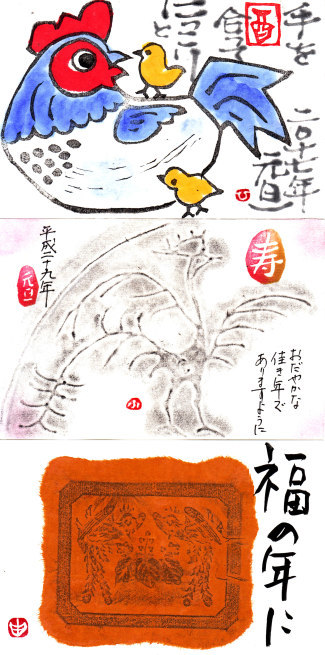 酉
手を
にっこりと
二〇十七年
元旦
寿
平成二十九年
元旦
おだやかな
佳き年で
ありますように
福の年に